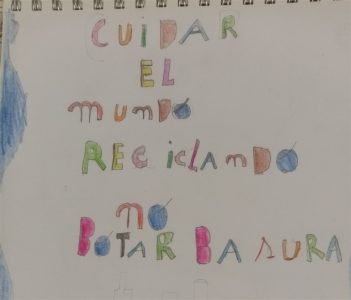 CUIDAR
EL
mUnDO
RECiCLAnDO
NO
BOTAR BASURA